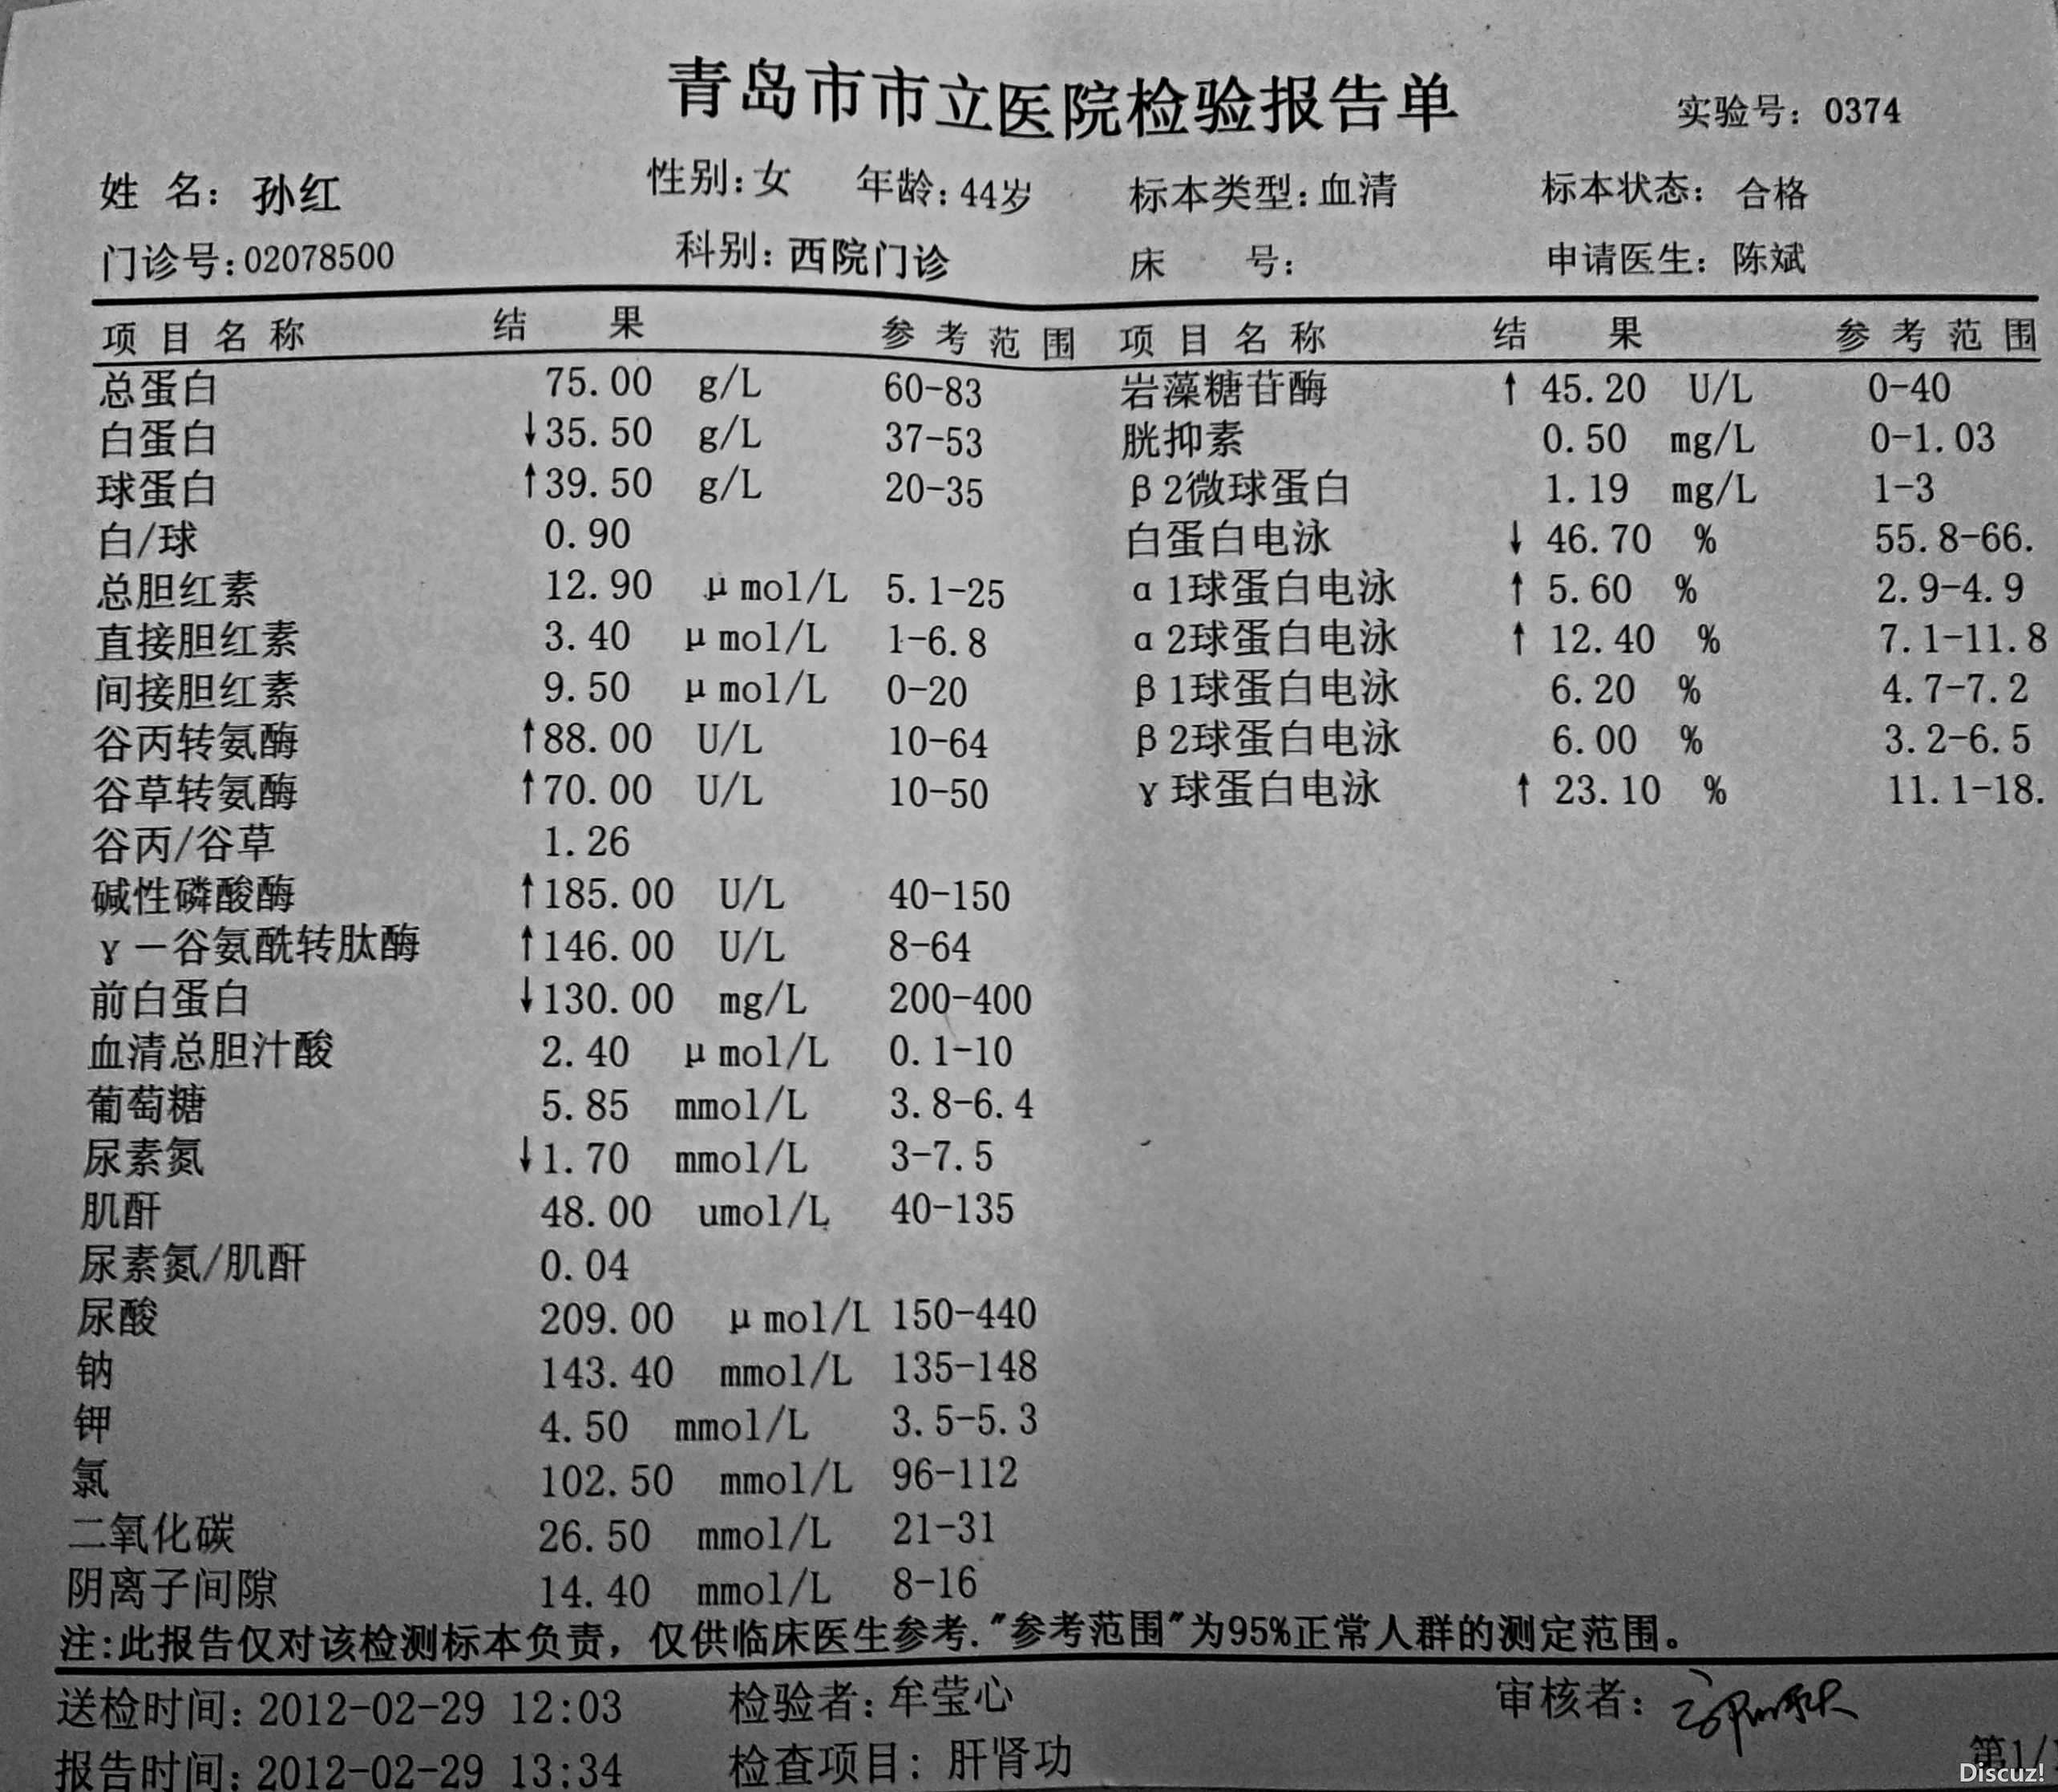 青岛市市立医院检验报告单
实验号：0374
姓 名：孙红 性别：女 年龄：44岁 标本类型：血清 标本状态：合格
门诊号：02078500 科别：西院门诊 床 号： 申请医生：陈斌
项目名称 结 果 参考范围 项目名称 结 果 参考范围
总蛋白 75.00 g/L 60-83 岩藻糖苷酶 ↑45.20 U/L 0-40
白蛋白 ↓35.50 g/L 37-53 胱抑素 0.50 mg/L 0-1.03
球蛋白 ↑39.50 g/L 20-35 β2微球蛋白 1.19 mg/L 1-3
白/球 0.90 白蛋白电泳 ↓46.70 % 55.8-66.
总胆红素 12.90 μmol/L 5.1-25 α1球蛋白电泳 ↑5.60 % 2.9-4.9
直接胆红素 3.40 μmol/L 1-6.8 α2球蛋白电泳 ↑12.40 % 7.1-11.8
间接胆红素 9.50 μmol/L 0-20 β1球蛋白电泳 6.20 % 4.7-7.2
谷丙转氨酶 ↑88.00 U/L 10-64 β2球蛋白电泳 6.00 % 3.2-6.5
谷草转氨酶 ↑70.00 U/L 10-50 γ球蛋白电泳 ↑23.10 % 11.1-18.
谷丙/谷草 1.26
碱性磷酸酶 ↑185.00 U/L 40-150
γ－谷氨酰转肽酶 ↑146.00 U/L 8-64
前白蛋白 ↓130.00 mg/L 200-400
血清总胆汁酸 2.40 μmol/L 0.1-10
葡萄糖 5.85 mmol/L 3.8-6.4
尿素氮 ↓1.70 mmol/L 3-7.5
肌酐 48.00 umol/L 40-135
尿素氮/肌酐 0.04
尿酸 209.00 μmol/L 150-440
钠 143.40 mmol/L 135-148
钾 4.50 mmol/L 3.5-5.3
氯 102.50 mmol/L 96-112
二氧化碳 26.50 mmol/L 21-31
阴离子间隙 14.40 mmol/L 8-16
注：此报告仅对该检测标本负责，仅供临床医生参考."参考范围"为95%正常人群的测定范围。
送检时间：2012-02-29 12:03 检验者：牟莹心 审核者：
报告时间：2012-02-29 13:34 检查项目：肝肾功 第1/
Discuz!